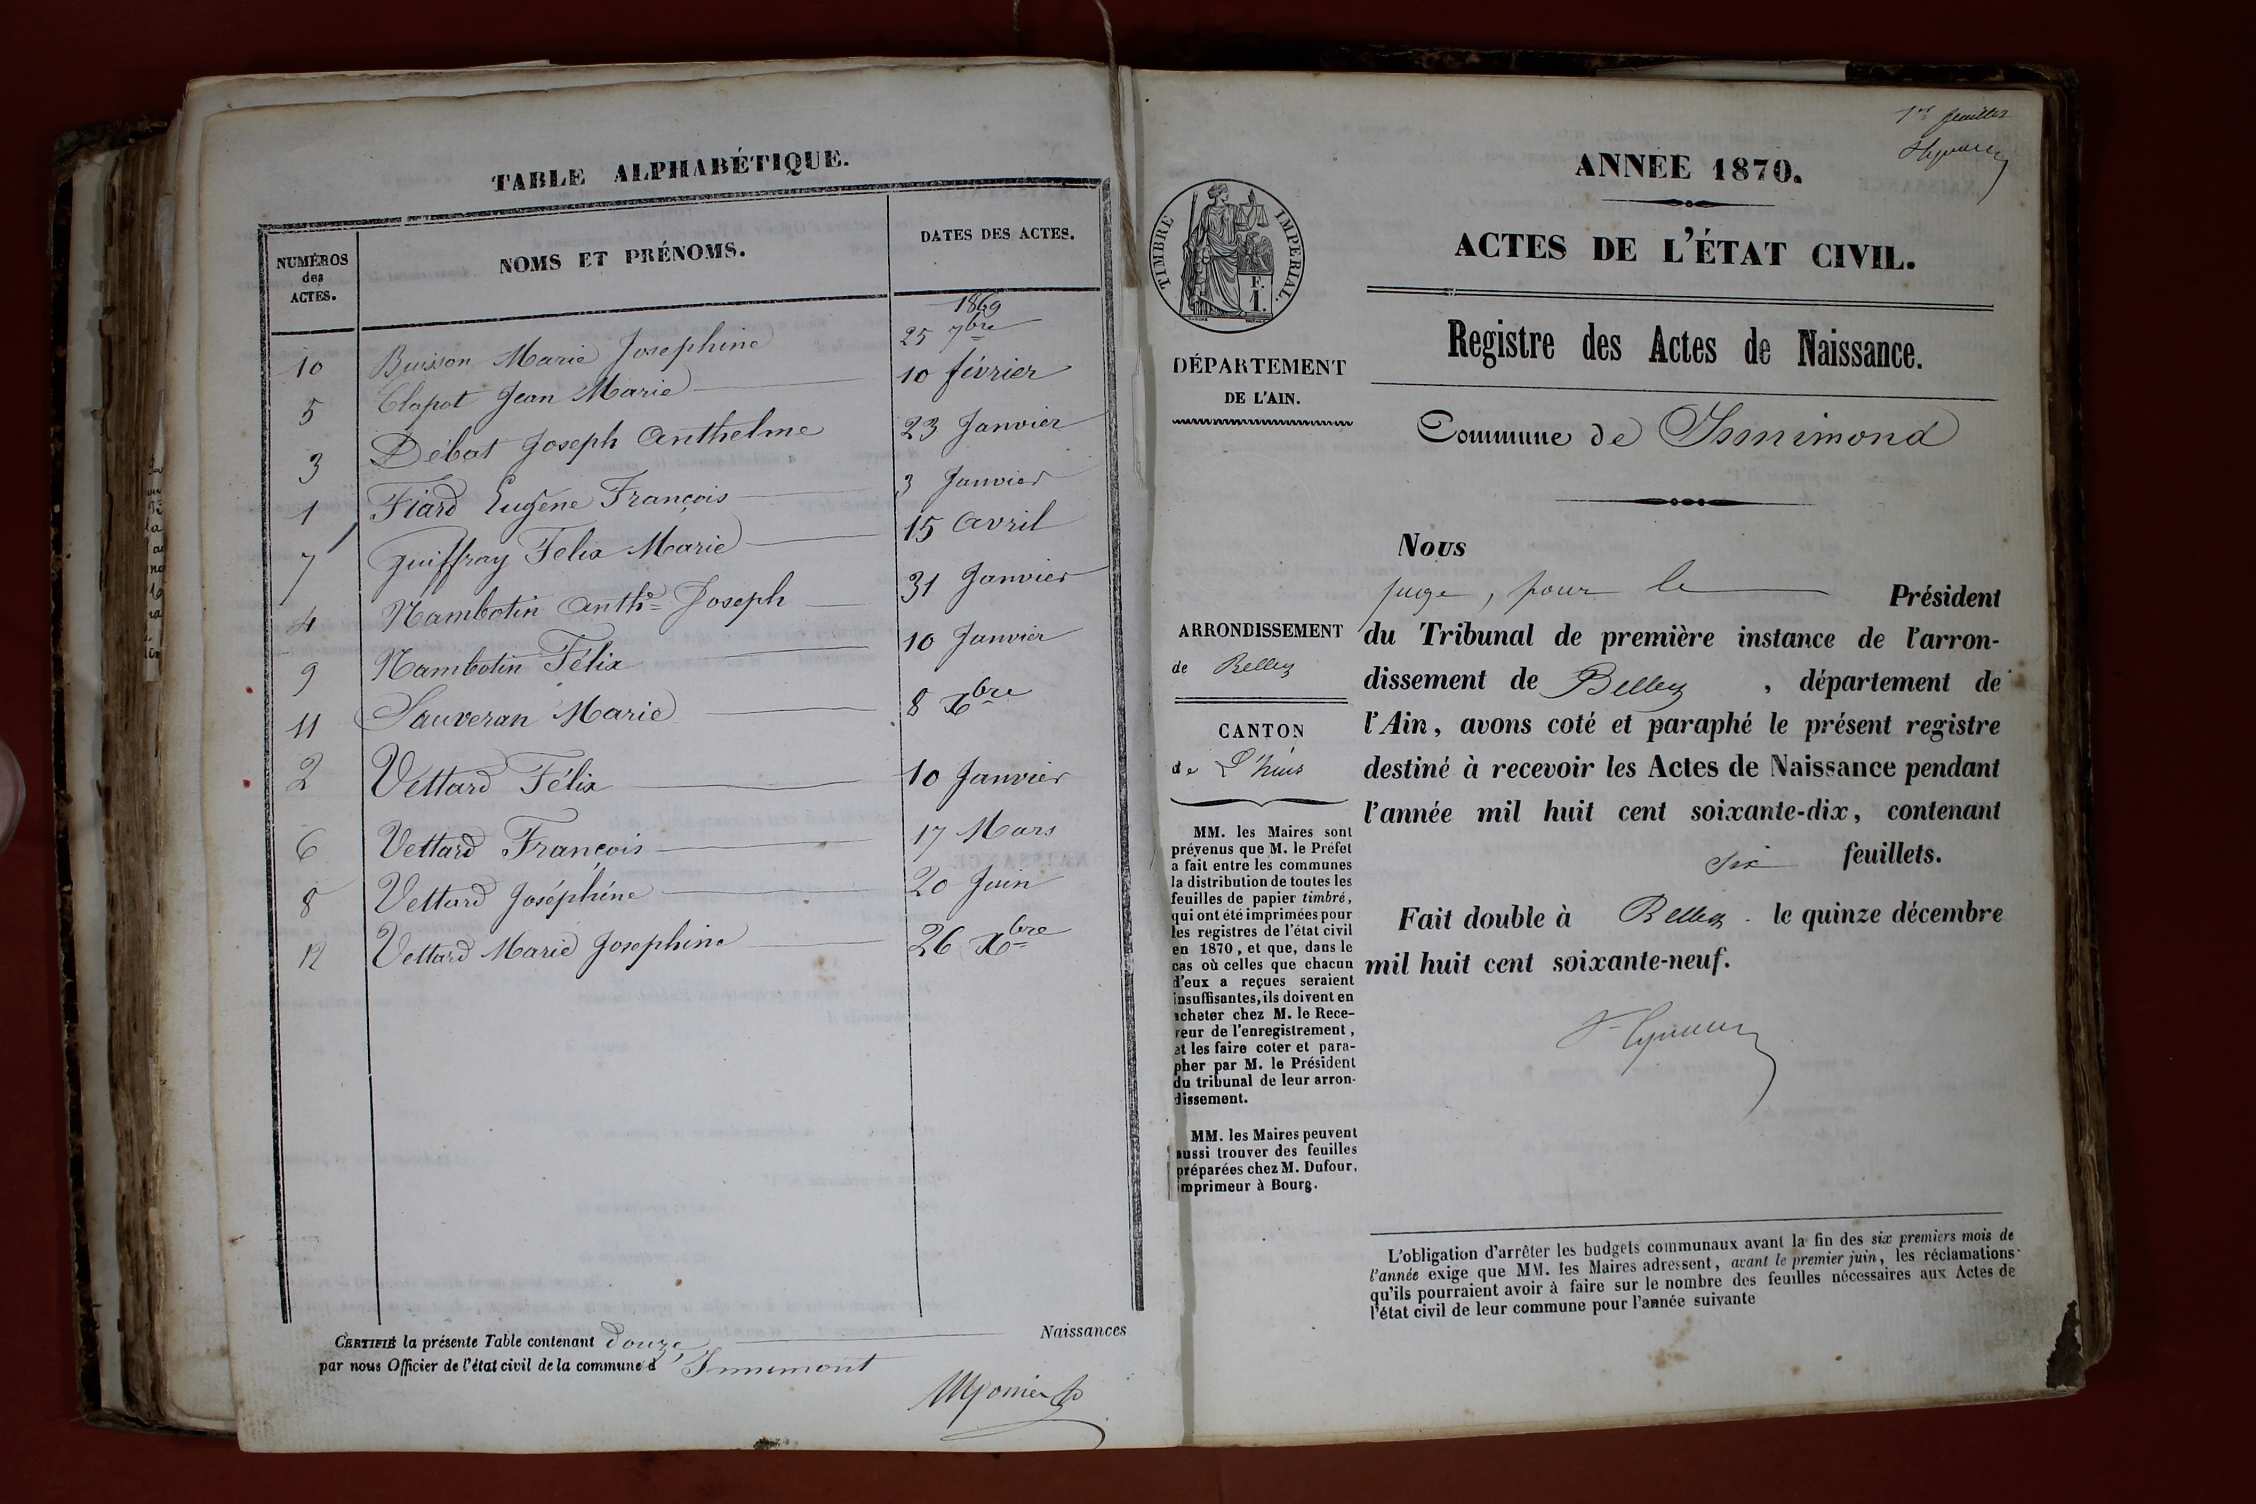 TABLE ALPHABÉTIQUE.
NUMÉROS des ACTES. NOMS ET PRÉNOMS. DATES DES ACTES.
1869
10 Buisson Marie Josephine 25 7bre
5 Clapot Jean Marie 10 février
3 Débat Joseph Anthelme 23 Janvier
1 Fiard Eugène François 3 Janvier
7 Guiffray Felix Marie 15 Avril
4 Nambotin Anthe Joseph 31 Janvier
9 Nambotin Félix 10 Janvier
11 Sauveran Marie 8 Xbre
2 Vettard Félix 10 Janvier
6 Vettard François 17 Mars
8 Vettard Joséphine 20 Juin
12 Vettard Marie Josephine 26 Xbre
CERTIFIÉ la présente Table contenant douze Naissances
par nous Officier de l'état civil de la commune d'Innimont
1er feuillet
ANNÉE 1870.
ACTES DE L'ÉTAT CIVIL.
TIMBRE IMPERIAL.
F.
1.
DÉPARTEMENT
DE L'AIN.
ARRONDISSEMENT
de Belley
CANTON
de L'huis
MM. les Maires sont
prévenus que M. le Préfet
a fait entre les communes
la distribution de toutes les
feuilles de papier timbré,
qui ont été imprimées pour
les registres de l'état civil
en 1870, et que, dans le
cas où celles que chacun
d'eux a reçues seraient
insuffisantes, ils doivent en
acheter chez M. le Rece-
veur de l'enregistrement,
et les faire coter et para-
pher par M. le Président
du tribunal de leur arron-
dissement.
MM. les Maires peuvent
aussi trouver des feuilles
préparées chez M. Dufour,
imprimeur à Bourg.
Registre des Actes de Naissance.
Commune de Innimond
Nous
juge, pour le Président
du Tribunal de première instance de l'arron-
dissement de Belley, département de
l'Ain, avons coté et paraphé le présent registre
destiné à recevoir les Actes de Naissance pendant
l'année mil huit cent soixante-dix, contenant
six feuillets.
Fait double à Belley le quinze décembre
mil huit cent soixante-neuf.
L'obligation d'arrêter les budgets communaux avant la fin des six premiers mois de
l'année exige que MM. les Maires adressent, avant le premier juin, les réclamations
qu'ils pourraient avoir à faire sur le nombre des feuilles nécessaires aux Actes de
l'état civil de leur commune pour l'année suivante